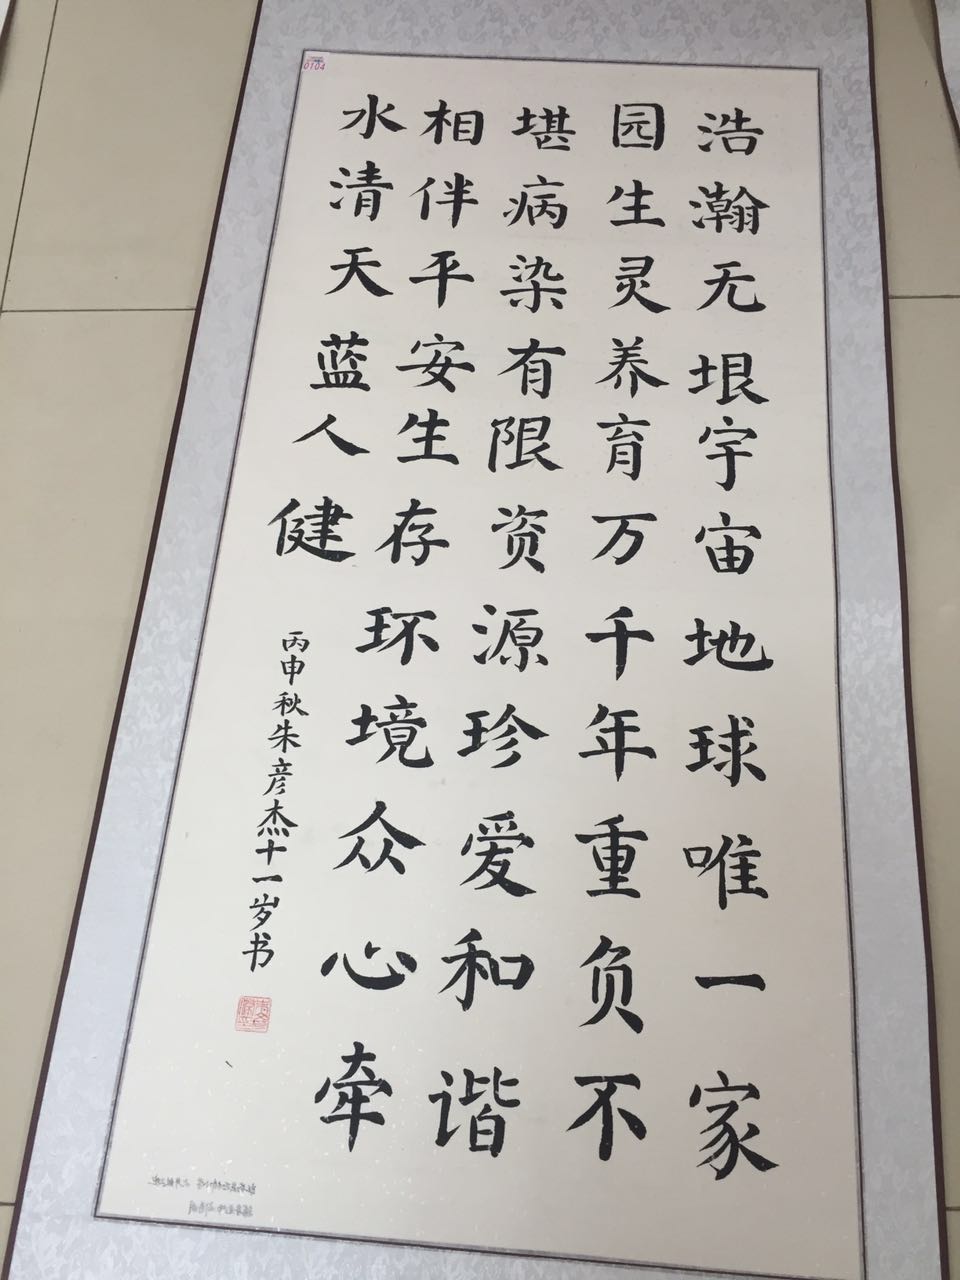 浩瀚无垠宇宙地球唯一家
园生灵养育万千年重负不
堪病染有限资源珍爱和谐
相伴平安生存环境众心牵
水清天蓝人健
丙申秋朱彦杰十一岁书
0104